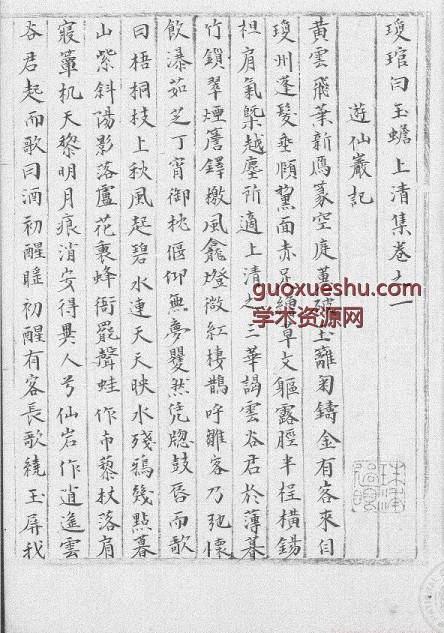 瓊琯白玉蟾上清集卷之一
遊仙巖記
黄雲飛葉新鴈篆空庭蕙破玉籬菊鑄金有客來自
瓊州蓬髮垂頤黧面赤足草文軀露脛半裎橫錫
袒肩氣槩越塵所適上清之三華謁雲谷君於薄暮
竹鎖翠煙簷鐸撤風龕燈微紅棲鵲呼雛客乃弛懷
飲瀑茹芝丁宵御枕偃仰無夢矍然凭牕鼓唇而歌
曰梧桐枝上秋風起碧水連天天映水殘鴉幾點暮
山紫斜陽影落蘆花裏蜂衙罷聲蛙作市藜杖落肩
寢机天黎明月痕消安得異人兮仙岩作逍遙雲
谷君起而歌曰酒初醒睡初醒有客長歌繞玉屏我
guoxueshu.com
学术资源网